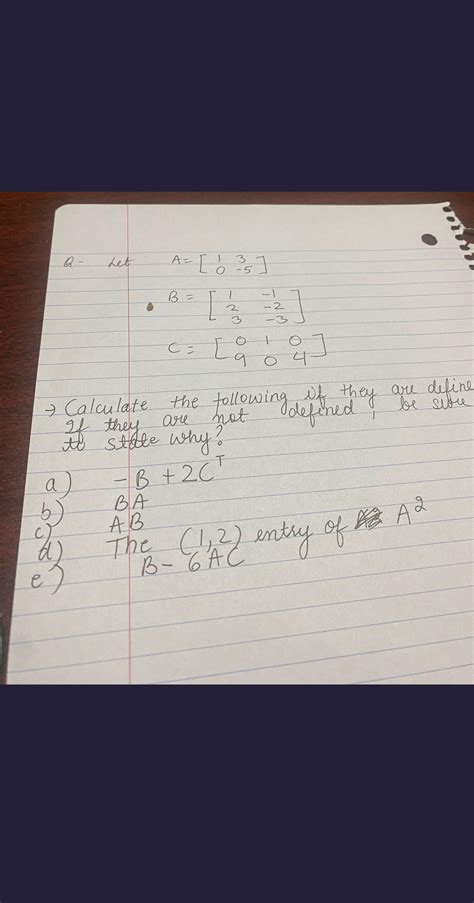 Q- Let A= [ 1 3
0 -5 ]
B = [ 1 -1
2 -2
3 -3 ]
C = [ 0 1 0
9 0 4 ]
→ Calculate the following if they are define
If they are not defined, be sure
to state why?
a) -B + 2Cᵀ
b) BA
c) AB
d) The (1,2) entry of A²
e) B- 6AC